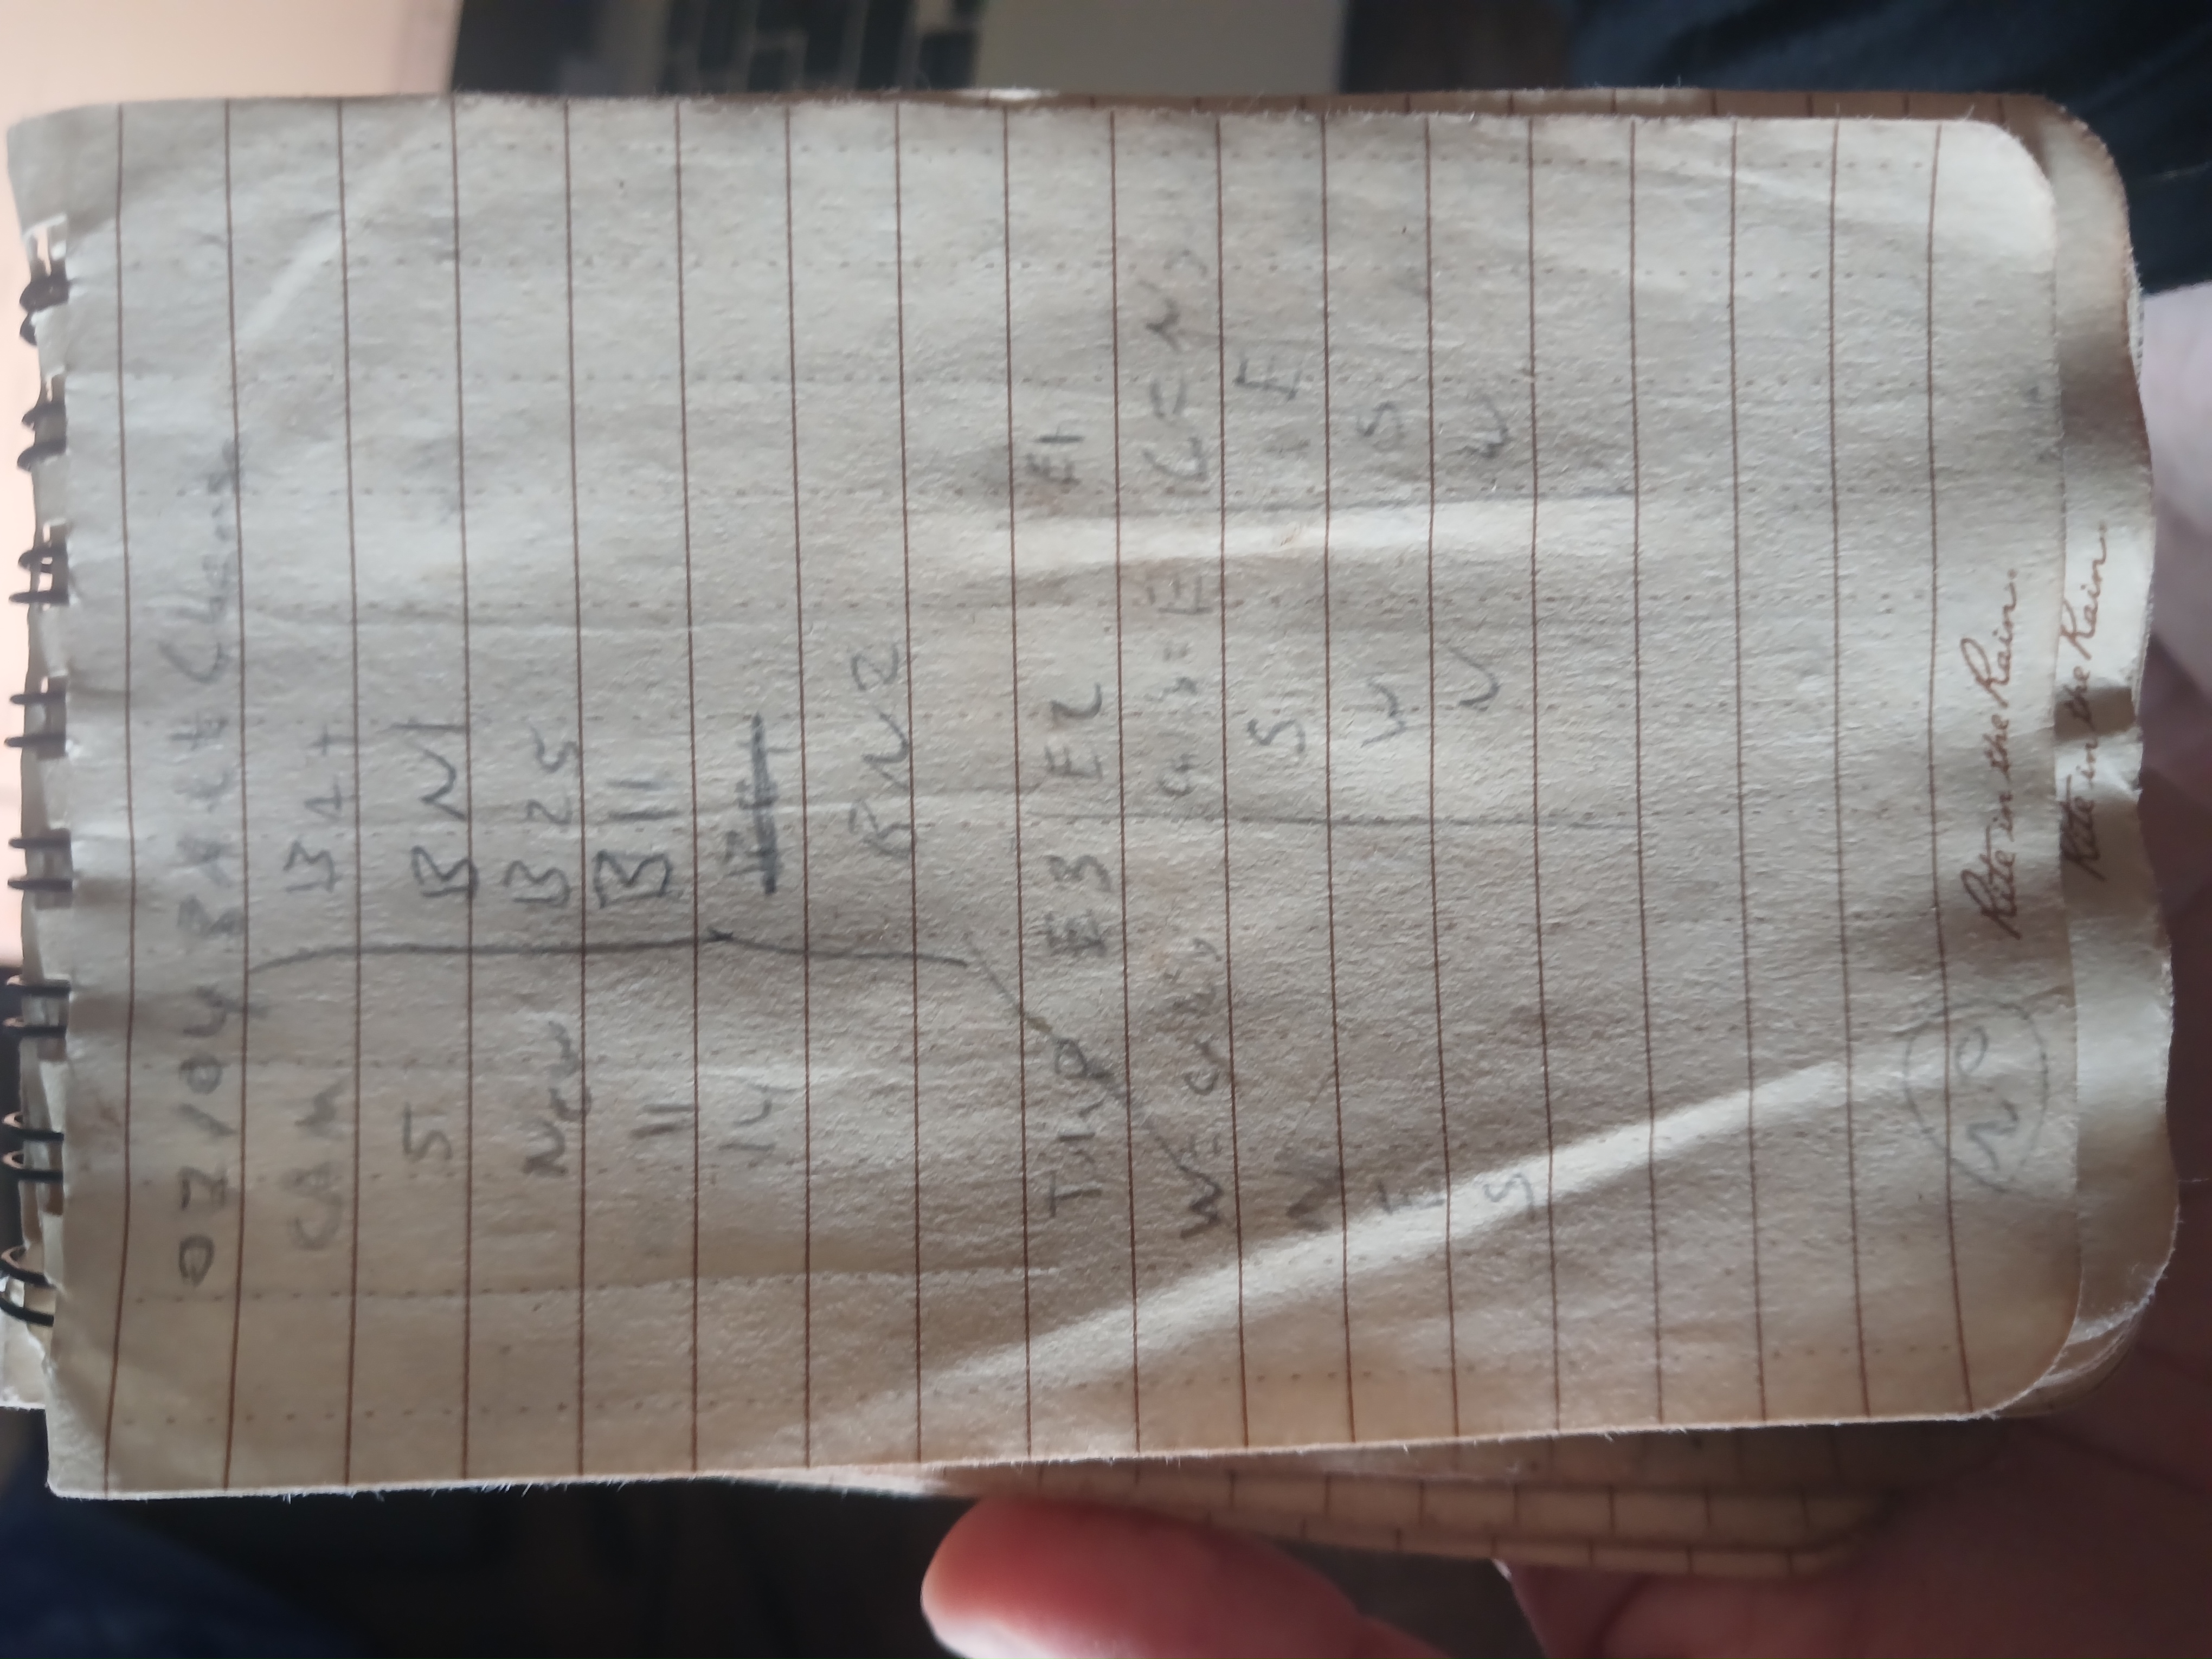 07/04 Batt Change
CAM Bat
5 BN1
New B25
11 B11
14
BN2
Tmp E3 E2 E1
W= = E C = N,
N S, E
E W S
S N W
Rite in the Rain.
Rite in the Rain.